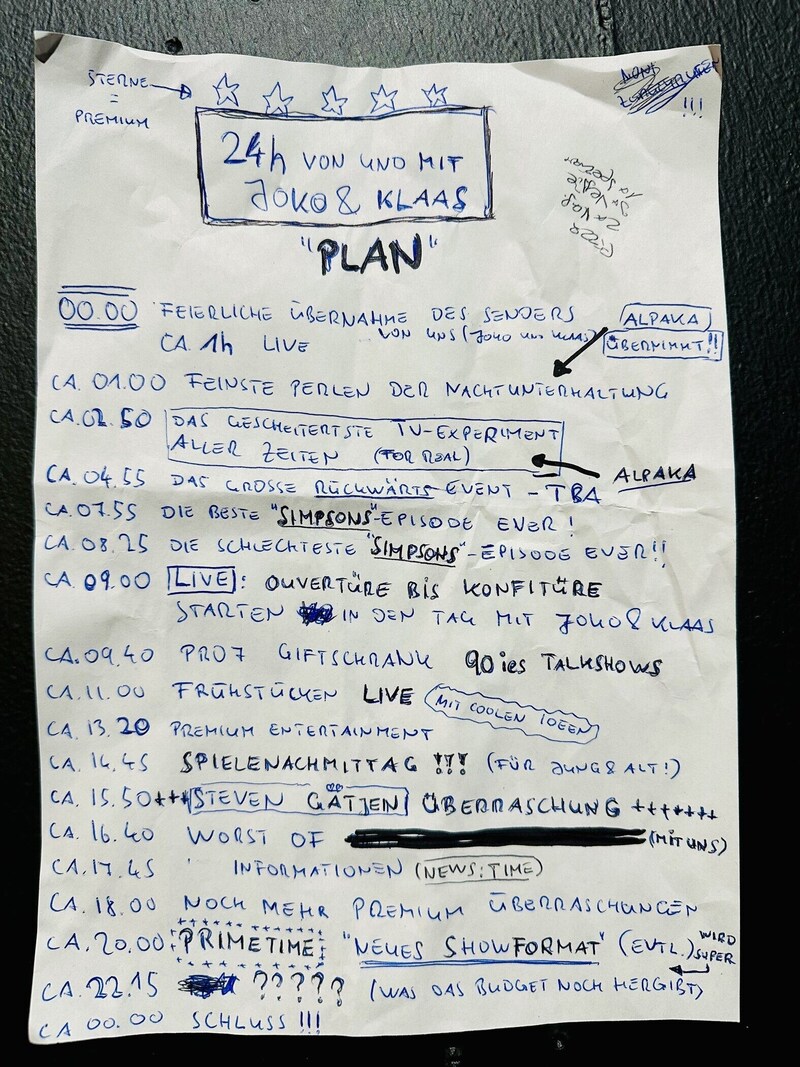 STERNE
=
PREMIUM
!!!
24h VON UND MIT
JOKO & KLAAS
"PLAN"
00.00 FEIERLICHE ÜBERNAHME DES SENDERS
VON UNS (JOKO UND KLAAS)
CA. 1h LIVE
ALPAKA
ÜBERNIMMT!!
CA. 01.00 FEINSTE PERLEN DER NACHTUNTERHALTUNG
CA. 02.50 DAS GESCHEITERTSTE TV-EXPERIMENT
ALLER ZEITEN (FOR REAL)
ALPAKA
CA. 04.55 DAS GROSSE RÜCKWÄRTS-EVENT - TBA
CA. 07.55 DIE BESTE "SIMPSONS"-EPISODE EVER!
CA. 08.25 DIE SCHLECHTESTE "SIMPSONS"-EPISODE EVER!!
CA. 09.00 LIVE: OUVERTÜRE BIS KONFITÜRE
STARTEN IN DEN TAG MIT JOKO & KLAAS
CA. 09.40 PRO7 GIFTSCHRANK 90ies TALKSHOWS
CA. 11.00 FRÜHSTÜCKEN LIVE MIT COOLEN IDEEN
CA. 13.20 PREMIUM ENTERTAINMENT
CA. 14.45 SPIELENACHMITTAG !!! (FÜR JUNG & ALT!)
CA. 15.50 +++ STEVEN GÄTJEN ÜBERRASCHUNG +++++++
CA. 16.40 WORST OF (MIT UNS)
CA. 17.45 INFORMATIONEN (NEWS:TIME)
CA. 18.00 NOCH MEHR PREMIUM ÜBERRASCHUNGEN
CA. 20.00: PRIMETIME "NEUES SHOWFORMAT" (EVTL.) WIRD
SUPER
CA. 22.15 ????? (WAS DAS BUDGET NOCH HERGIBT)
CA 00.00 SCHLUSS !!!